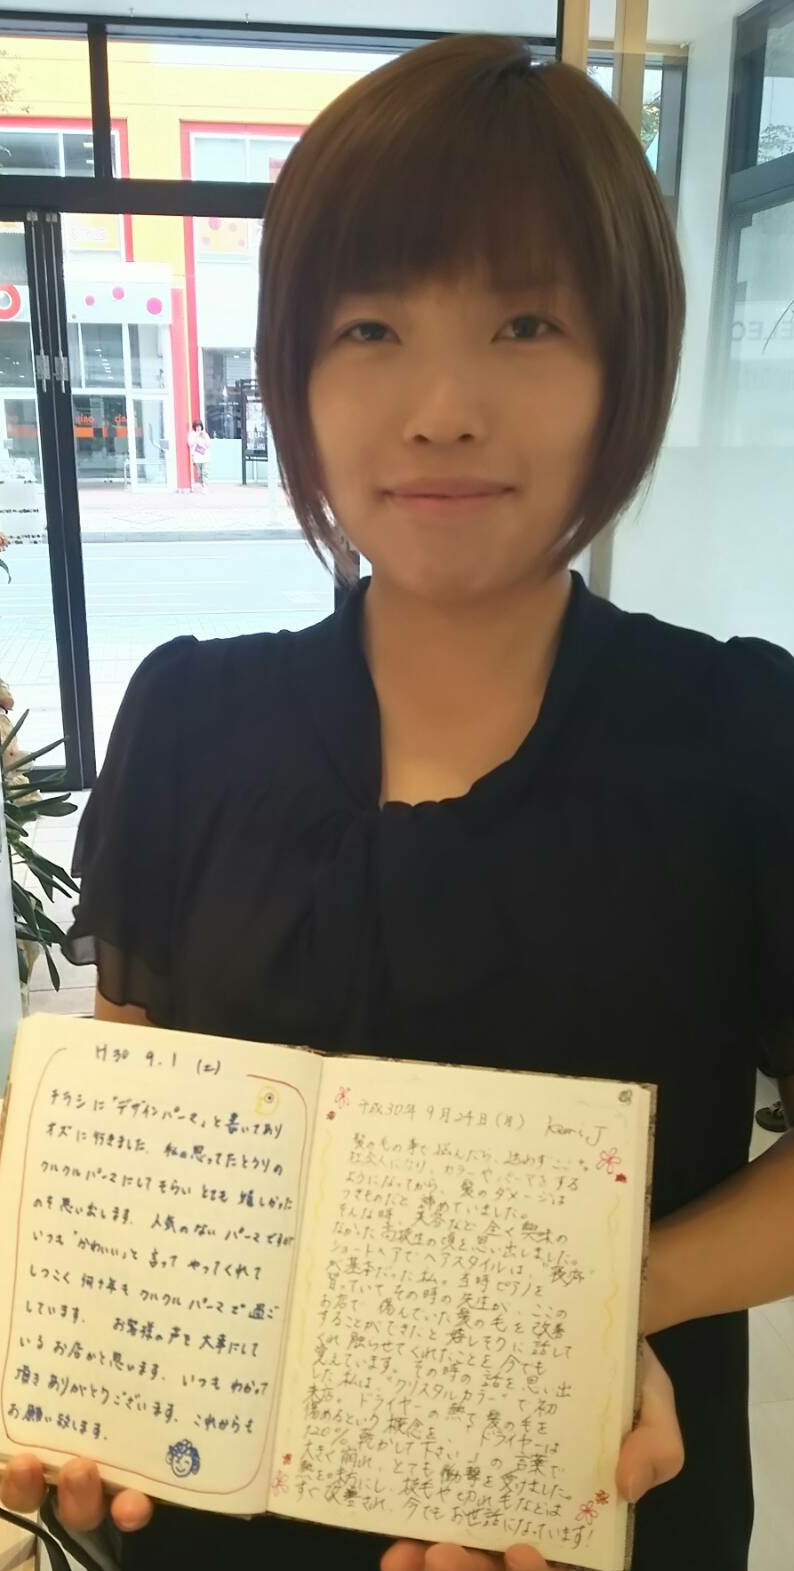 H30 9.1 (土)
チラシに「デザインパーマ」と書いてあり
オズに行きました。私の思ってたとうりの
クルクルパーマにしてもらいとても嬉しかった
のを思い出します。人気のない パーマですが
いつも「かわいい」と言って やってくれて
しつこく 何十年も クルクルパーマで過ご
しています。 お客様の声を大事にして
いる お店かと思います。いつも わがって
頂き ありがとうございます。これからも
お願い致します。
平成30年9月24日(月)
髪の毛の事で悩んだら、迷わずここ。
社会人になり、カラーやパーマをする
ようになってから、髪のダメージは
つきものだと諦めていました。
そんな時、美容など全く興味の
なかった高校生の頃を思い出しました。
ショートヘアでヘアスタイルは、
が基本だった私。当時ピアノを
習っていてその時の先生が、ここの
お店で 傷んでいた髪の毛を改善
することができたと嬉しそうに話して
くれ 触らせてくれたことを今でも
覚えています。その時の話を思い出
した私は"クリスタルカラー"で初
来店。ドライヤーの熱で髪の毛を
傷めるという概念を、「ドライヤーは
120%乾かして下さい」の言葉で
大きく崩れ、とても衝撃を受けました。
熱を味方にし、枝毛や切れ毛などは
すぐ改善され、今でもお世話になっています!